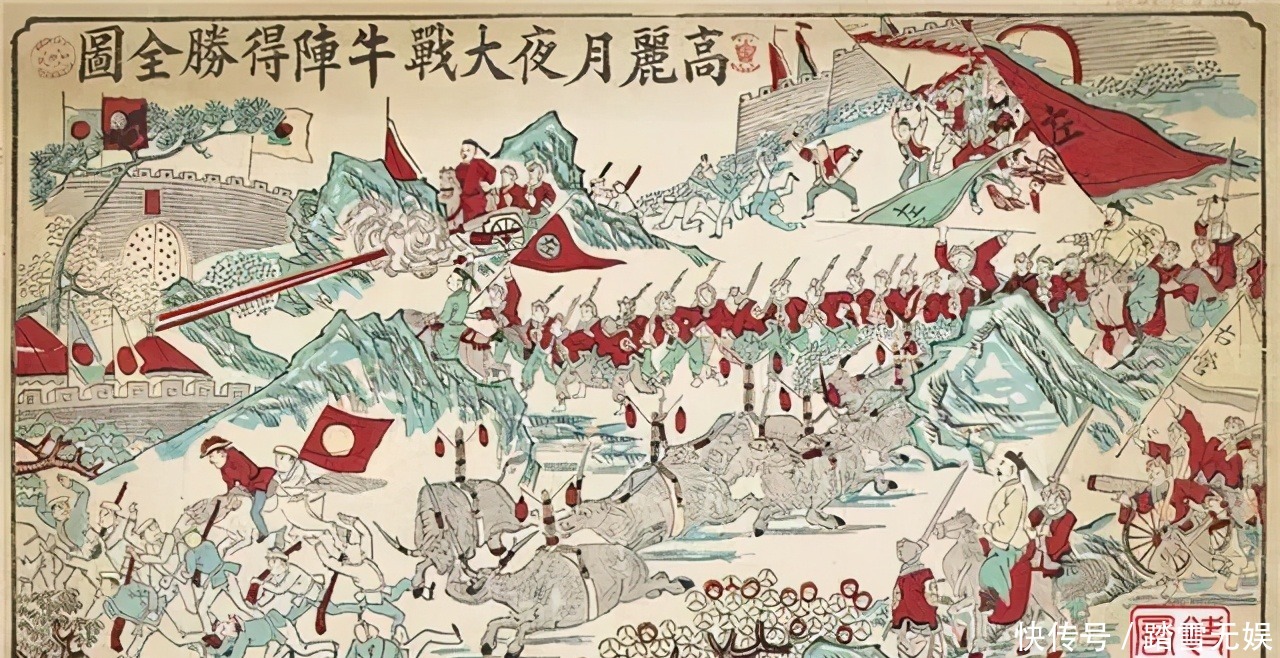 高麗月夜大戰牛陣得勝全圖
左
左
右營
快传号 / 踏雪无娱